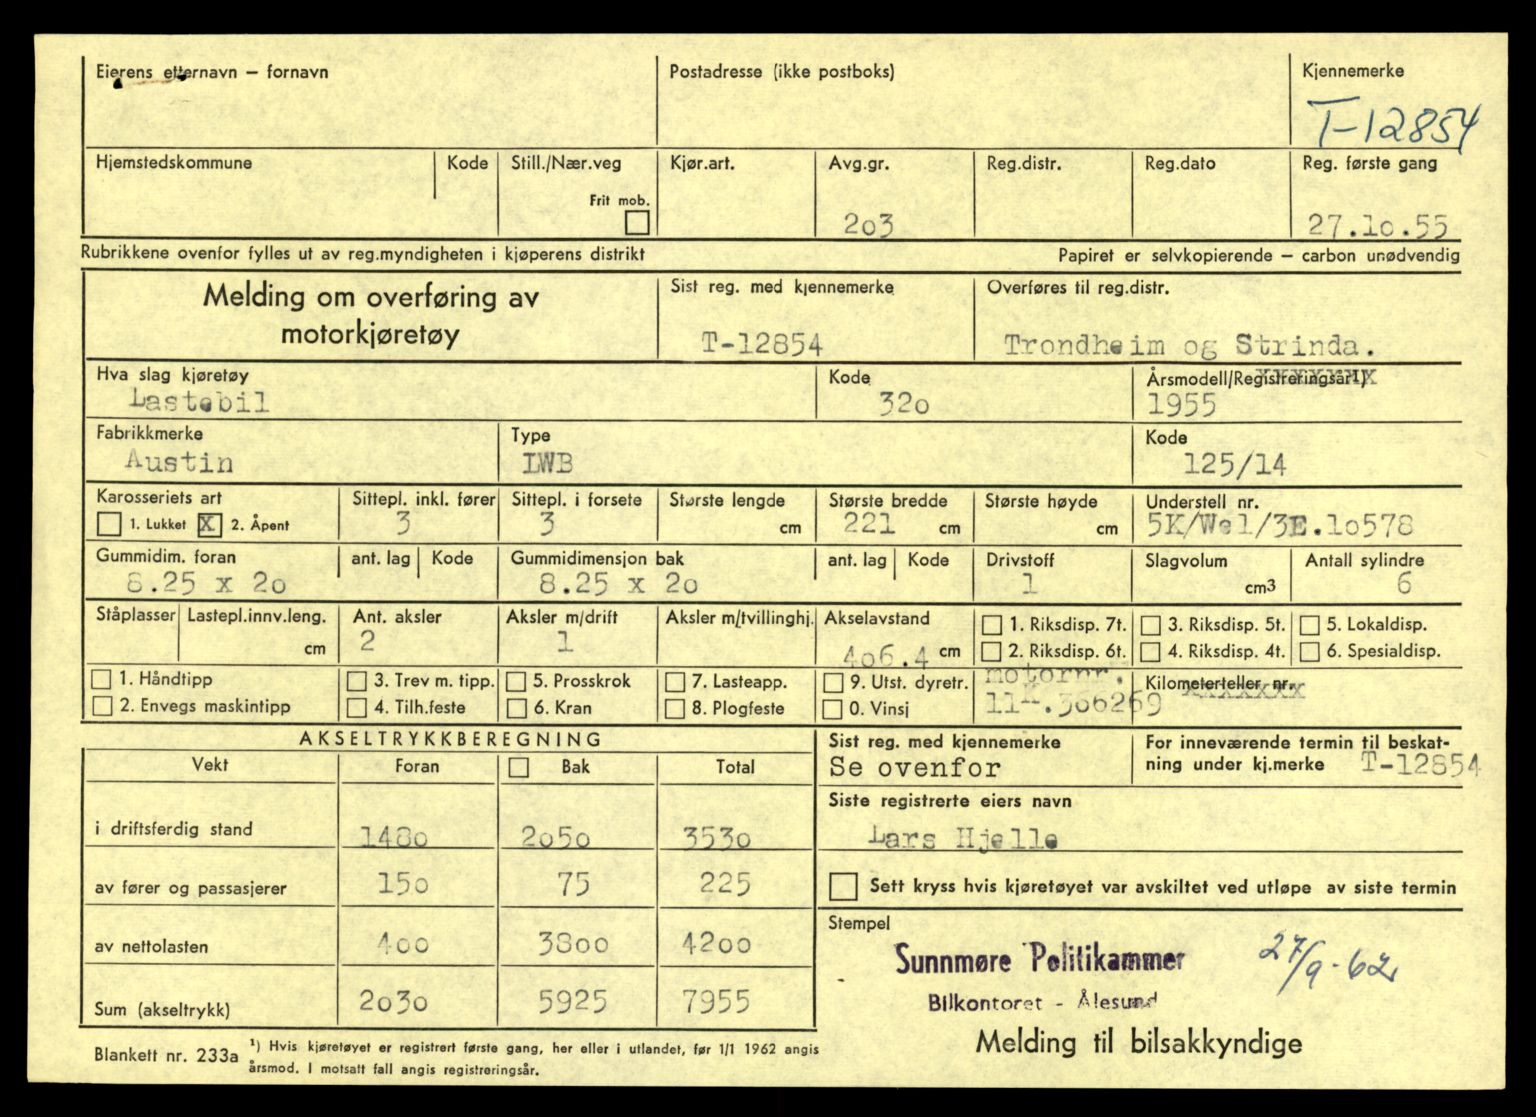 Eierens etternavn – fornavn
Postadresse (ikke postboks)
Kjennemerke
T-12854
Hjemstedskommune
Kode
Still./Nær.veg
Frit mob.
Kjør.art.
Avg.gr.
203
Reg.distr.
Reg.dato
Reg. første gang
27.10.55
Rubrikkene ovenfor fylles ut av reg.myndigheten i kjøperens distrikt
Papiret er selvkopierende – carbon unødvendig
Melding om overføring av
motorkjøretøy
Sist reg. med kjennemerke
T-12854
Overføres til reg.distr.
Trondheim og Strinda.
Hva slag kjøretøy
Lastebil
Kode
320
Årsmodell/Registreringsår1)
1955
Fabrikkmerke
Austin
Type
LWB
Kode
125/14
Karosseriets art
1. Lukket X 2. Åpent
Sittepl. inkl. fører
3
Sittepl. i forsete
3
Største lengde
cm
Største bredde
221 cm
Største høyde
cm
Understell nr.
5K/We1/3E.10578
Gummidim. foran
8.25 x 20
ant. lag
Kode
Gummidimensjon bak
8.25 x 20
ant. lag
Kode
Drivstoff
1
Slagvolum
cm3
Antall sylindre
6
Ståplasser
Lastepl.innv.leng.
cm
Ant. aksler
2
Aksler m/drift
1
Aksler m/tvillinghj.
Akselavstand
406.4 cm
1. Riksdisp. 7t.
2. Riksdisp. 6t.
3. Riksdisp. 5t.
4. Riksdisp. 4t.
5. Lokaldisp.
6. Spesialdisp.
1. Håndtipp
2. Envegs maskintipp
3. Trev m. tipp.
4. Tilh.feste
5. Prosskrok
6. Kran
7. Lasteapp.
8. Plogfeste
9. Utst. dyretr.
0. Vinsj
motornr.
Kilometerteller nr.
AKSELTRYKKBEREGNING
Vekt
Foran
Bak
Total
i driftsferdig stand
1480
2050
3530
av fører og passasjerer
150
75
225
av nettolasten
400
3800
4200
Sum (akseltrykk)
2030
5925
7955
Sist reg. med kjennemerke
Se ovenfor
For inneværende termin til beskat-
ning under kj.merke T-12854
Siste registrerte eiers navn
Lars Hjelle
Sett kryss hvis kjøretøyet var avskiltet ved utløpe av siste termin
Stempel
Sunnmøre Politikammer
Bilkontoret - Ålesund
27/9-62
Melding til bilsakkyndige
Blankett nr. 233a
1) Hvis kjøretøyet er registrert første gang, her eller i utlandet, før 1/1 1962 angis
årsmod. I motsatt fall angis registreringsår.